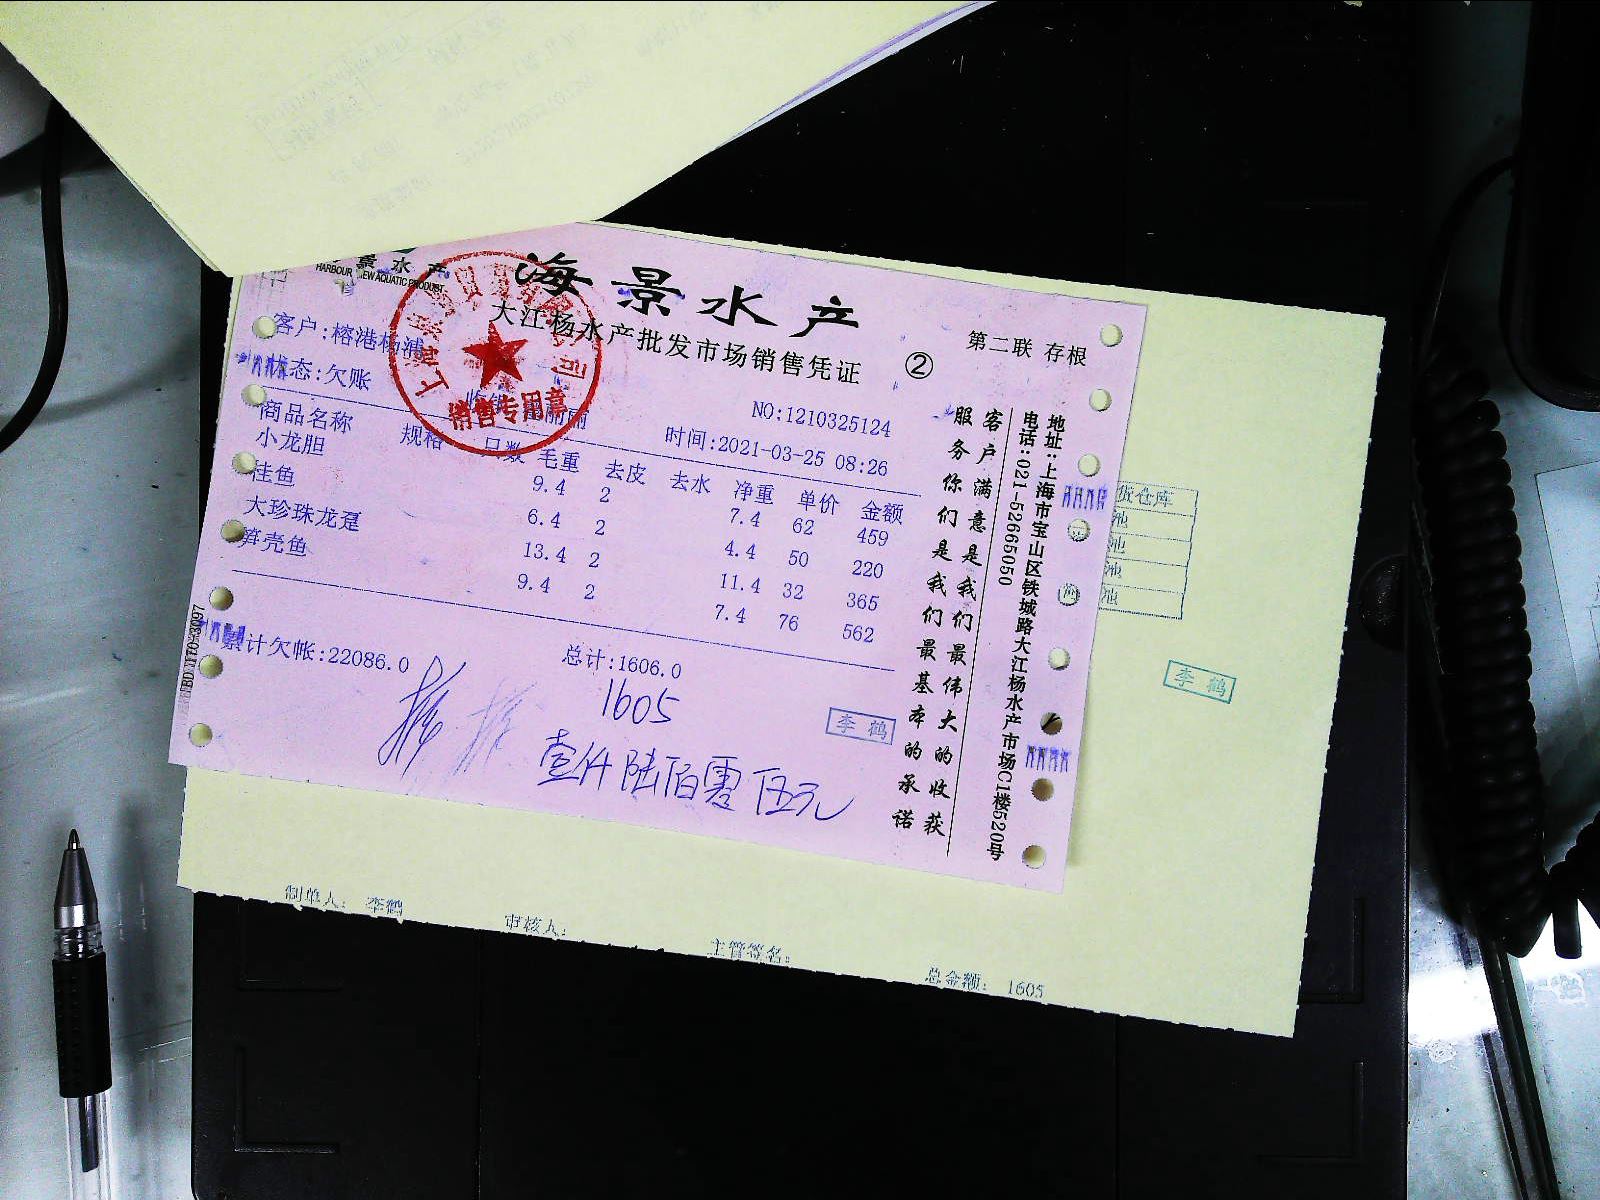 景水产
HARBOUR VIEW AQUATIC PRODUCT
海景水产
大江杨水产批发市场销售凭证
② 第二联 存根
客户:榕港杨浦
状态:欠账
NO:1210325124
时间:2021-03-25 08:26
商品名称 规格 只数 毛重 去皮 去水 净重 单价 金额
小龙胆 9.4 2 7.4 62 459
桂鱼 6.4 2 4.4 50 220
大珍珠龙趸 13.4 2 11.4 32 365
笋壳鱼 9.4 2 7.4 76 562
累计欠帐:22086.0 总计:1606.0
1605
壹仟陆佰零伍元
李鹤
销售专用章
客户满意是我们最伟大的收获
服务你们是我们最基本的承诺
地址:上海市宝山区铁城路大江杨水产市场C1楼520号
电话:021-52665050
货仓库
李鹤
制单人: 李鹤
审核人:
主管签名:
总金额: 1605